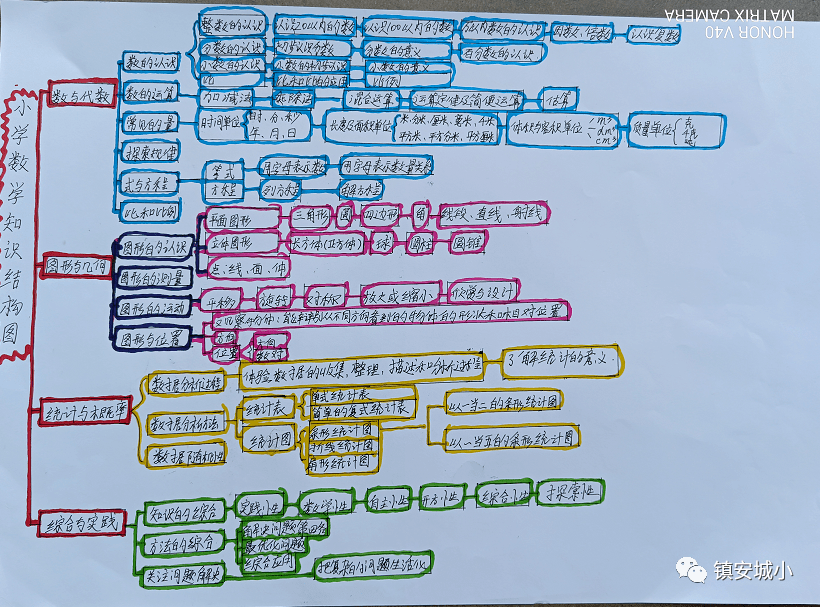 小学数学知识结构图
数与代数
数的认识
整数的认识 认识20以内的数 认识100以内的数 万以内数的认识 因数、倍数 认识负数
分数的认识 初步认识分数 分数的意义 百分数的认识
小数的认识 小数的初步认识 小数的意义
比 比和比的应用 比例
数的运算 加减法 乘除法 混合运算 运算定律及简便运算 估算
常见的量 时间单位 时、分、秒 年、月、日 长度及面积单位 米、分米、厘米、毫米、千米 平方米、平方分米、平方厘米 体积与容积单位 m³ dm³ cm³ 质量单位 克 千克 吨
探索规律
式与方程 等式 用字母表示数 用字母表示数量关系
方程 列方程 解方程
比和比例
图形与几何
图形的认识
平面图形 三角形 圆 四边形 角 线段、直线、射线
立体图形 长方体(正方体) 球 圆柱 圆锥
点、线、面、体
图形的测量
图形的运动 平移 旋转 对称 放大或缩小 欣赏与设计
图形与位置
方向
位置 数对
统计与概率
数据分析过程 体验数据的收集,整理,描述和分析过程 了解统计的意义.
数据分析方法
统计表 单式统计表
简单的复式统计表
统计图 条形统计图
折线统计图
扇形统计图
以一当二的条形统计图
以一当五的条形统计图
数据随机性
综合与实践
知识的综合 实践性 数学性 自主性 开方性 综合性 探索性
方法的综合 解决问题策略
最优化问题
综合应用
关注问题解决 把复杂的问题生活化
HONOR V40
MATRIX CAMERA
镇安城小